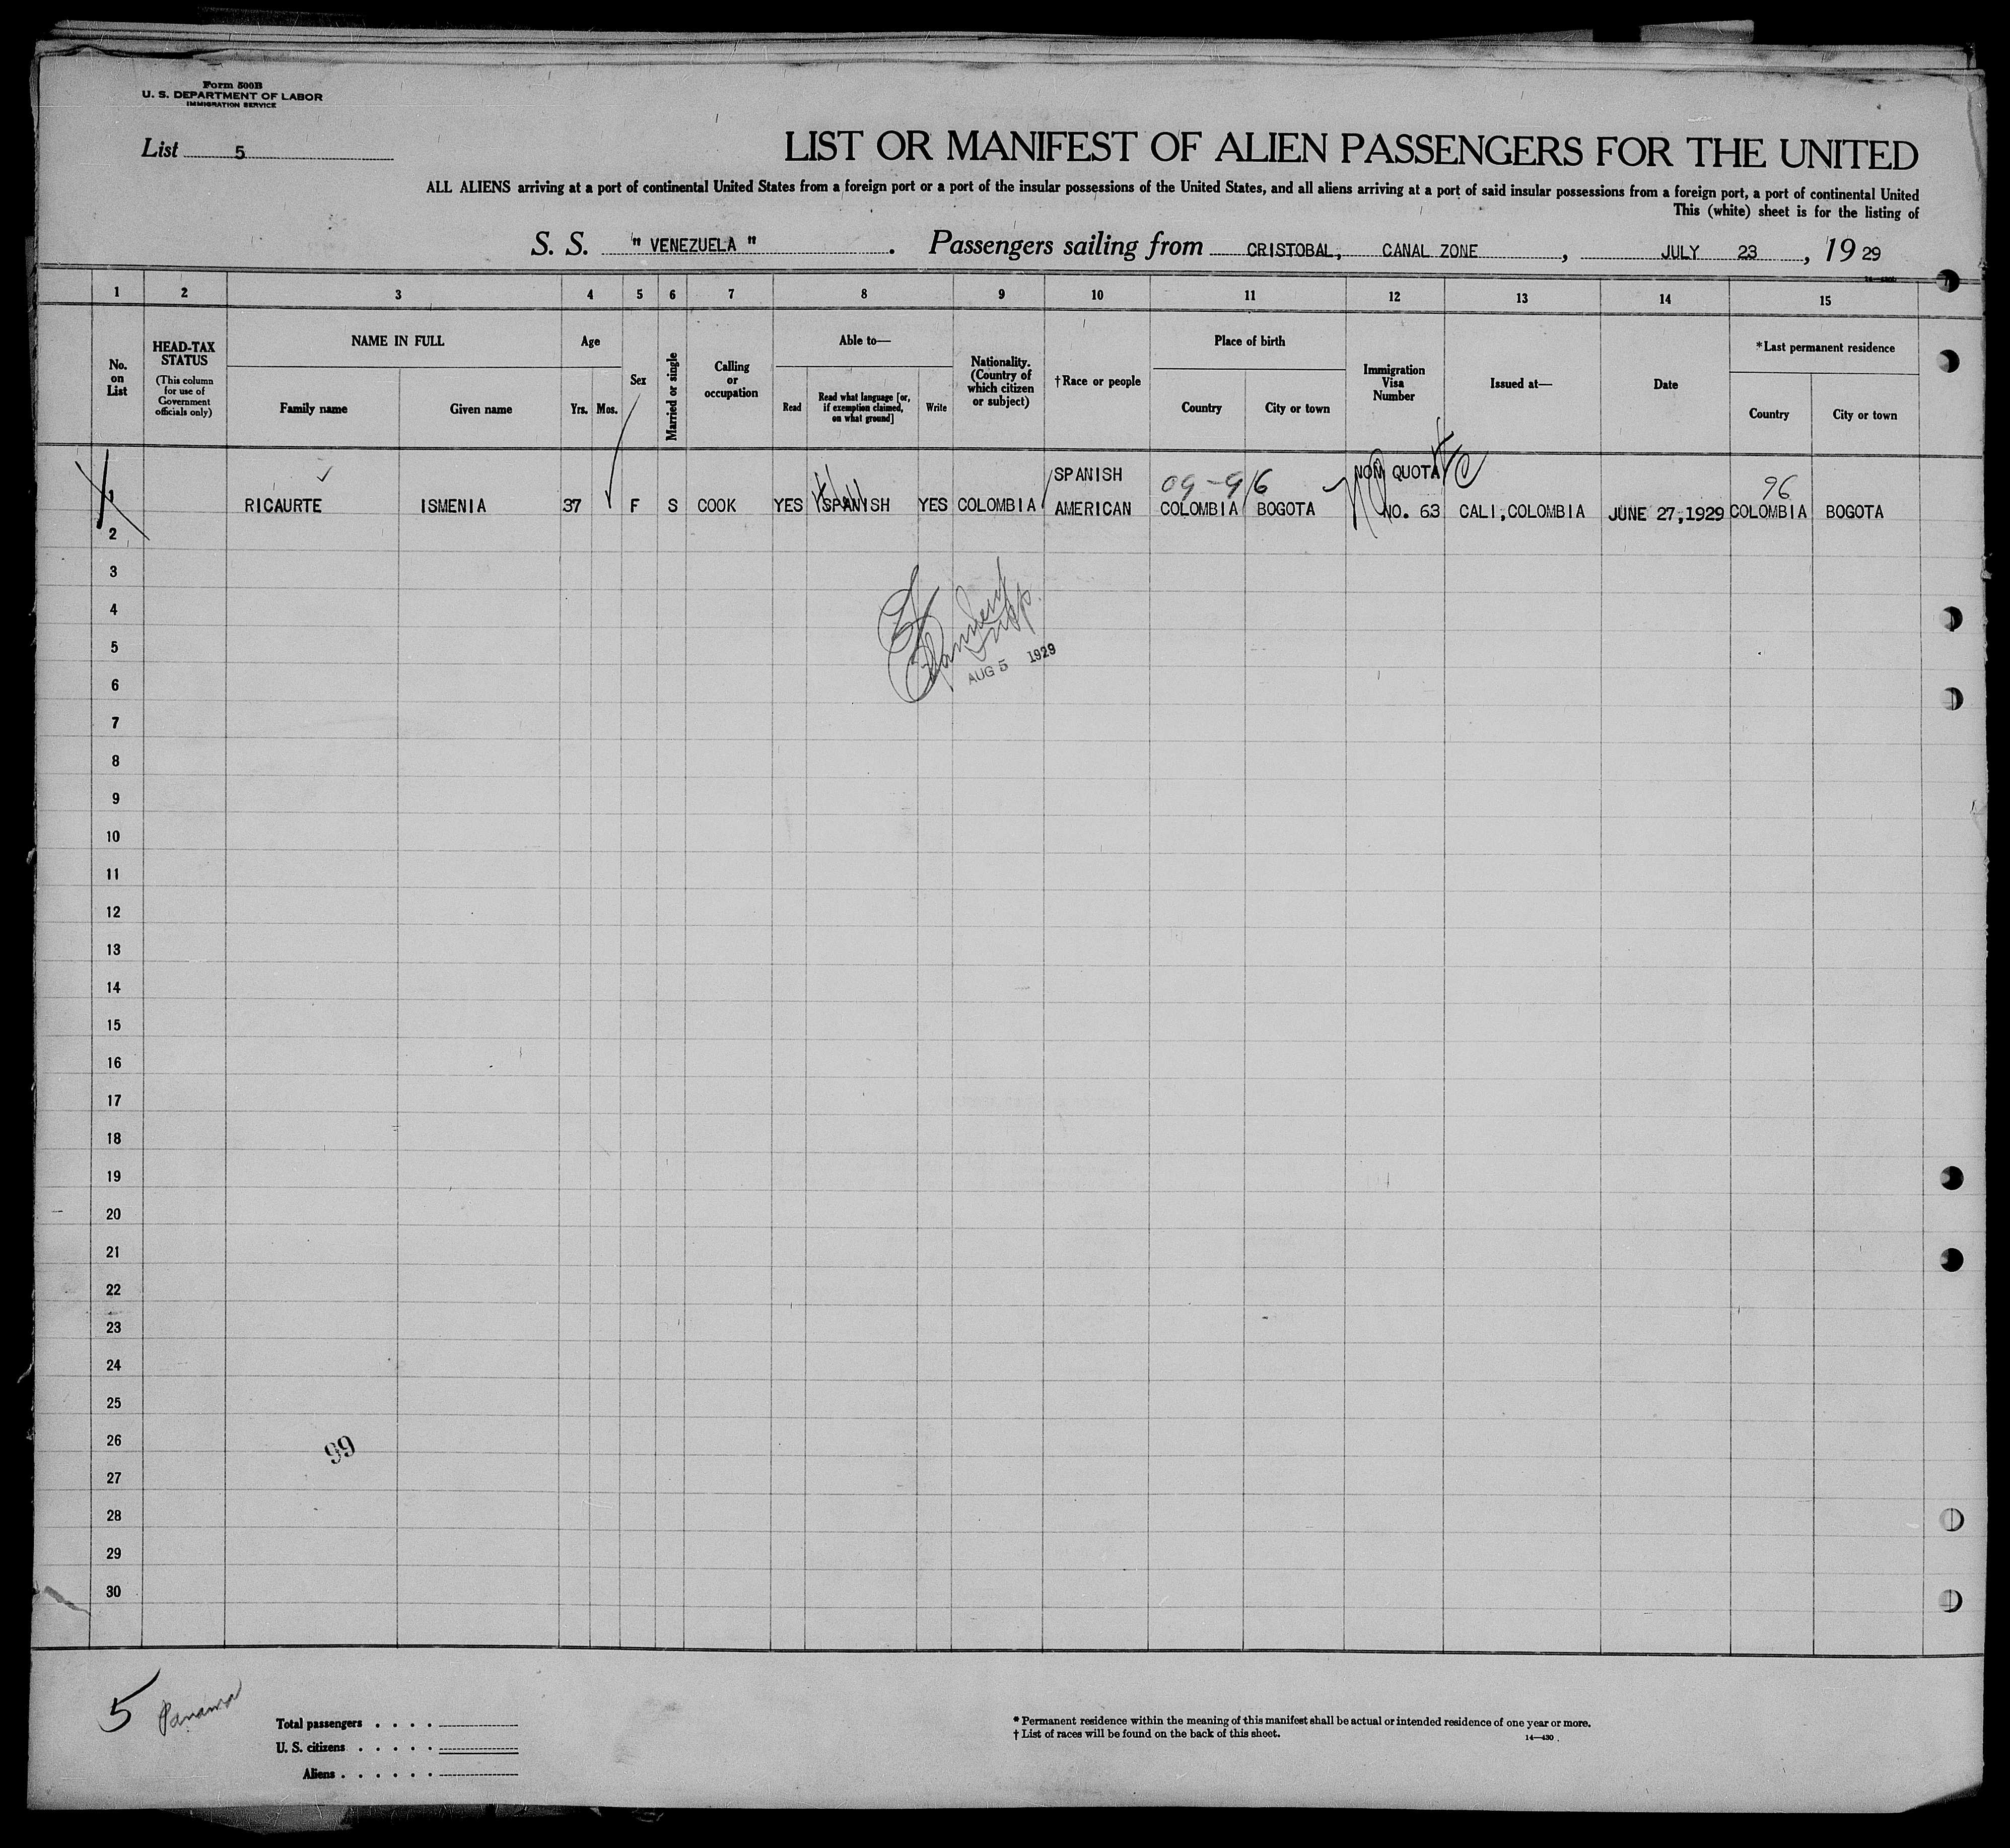 Form 500B
U. S. DEPARTMENT OF LABOR
IMMIGRATION SERVICE
List 5
LIST OR MANIFEST OF ALIEN PASSENGERS FOR THE UNITED
ALL ALIENS arriving at a port of continental United States from a foreign port or a port of the insular possessions of the United States, and all aliens arriving at a port of said insular possessions from a foreign port, a port of continental United
This (white) sheet is for the listing of
S. S. " VENEZUELA " . Passengers sailing from CRISTOBAL, CANAL ZONE , JULY 23 , 19 29
1 2 3 4 5 6 7 8 9 10 11 12 13 14 15
No. on List
HEAD-TAX STATUS
(This column for use of Government officials only)
NAME IN FULL
Family name
Given name
Age
Yrs. Mos.
Sex
Married or single
Calling or occupation
Able to—
Read
Read what language [or, if exemption claimed, on what ground]
Write
Nationality. (Country of which citizen or subject)
†Race or people
Place of birth
Country
City or town
Immigration Visa Number
Issued at—
Date
*Last permanent residence
Country
City or town
SPANISH 09-96 NON QUOTA 96
1 RICAURTE ISMENIA 37 F S COOK YES SPANISH YES COLOMBIA AMERICAN COLOMBIA BOGOTA NO. 63 CALI, COLOMBIA JUNE 27, 1929 COLOMBIA BOGOTA
2
3
4
5
AUG 5 1929
6
7
8
9
10
11
12
13
14
15
16
17
18
19
20
21
22
23
24
25
26
99
27
28
29
30
5 Panama
Total passengers . . . .
U. S. citizens . . . . .
Aliens . . . . . .
* Permanent residence within the meaning of this manifest shall be actual or intended residence of one year or more.
† List of races will be found on the back of this sheet.
14—430